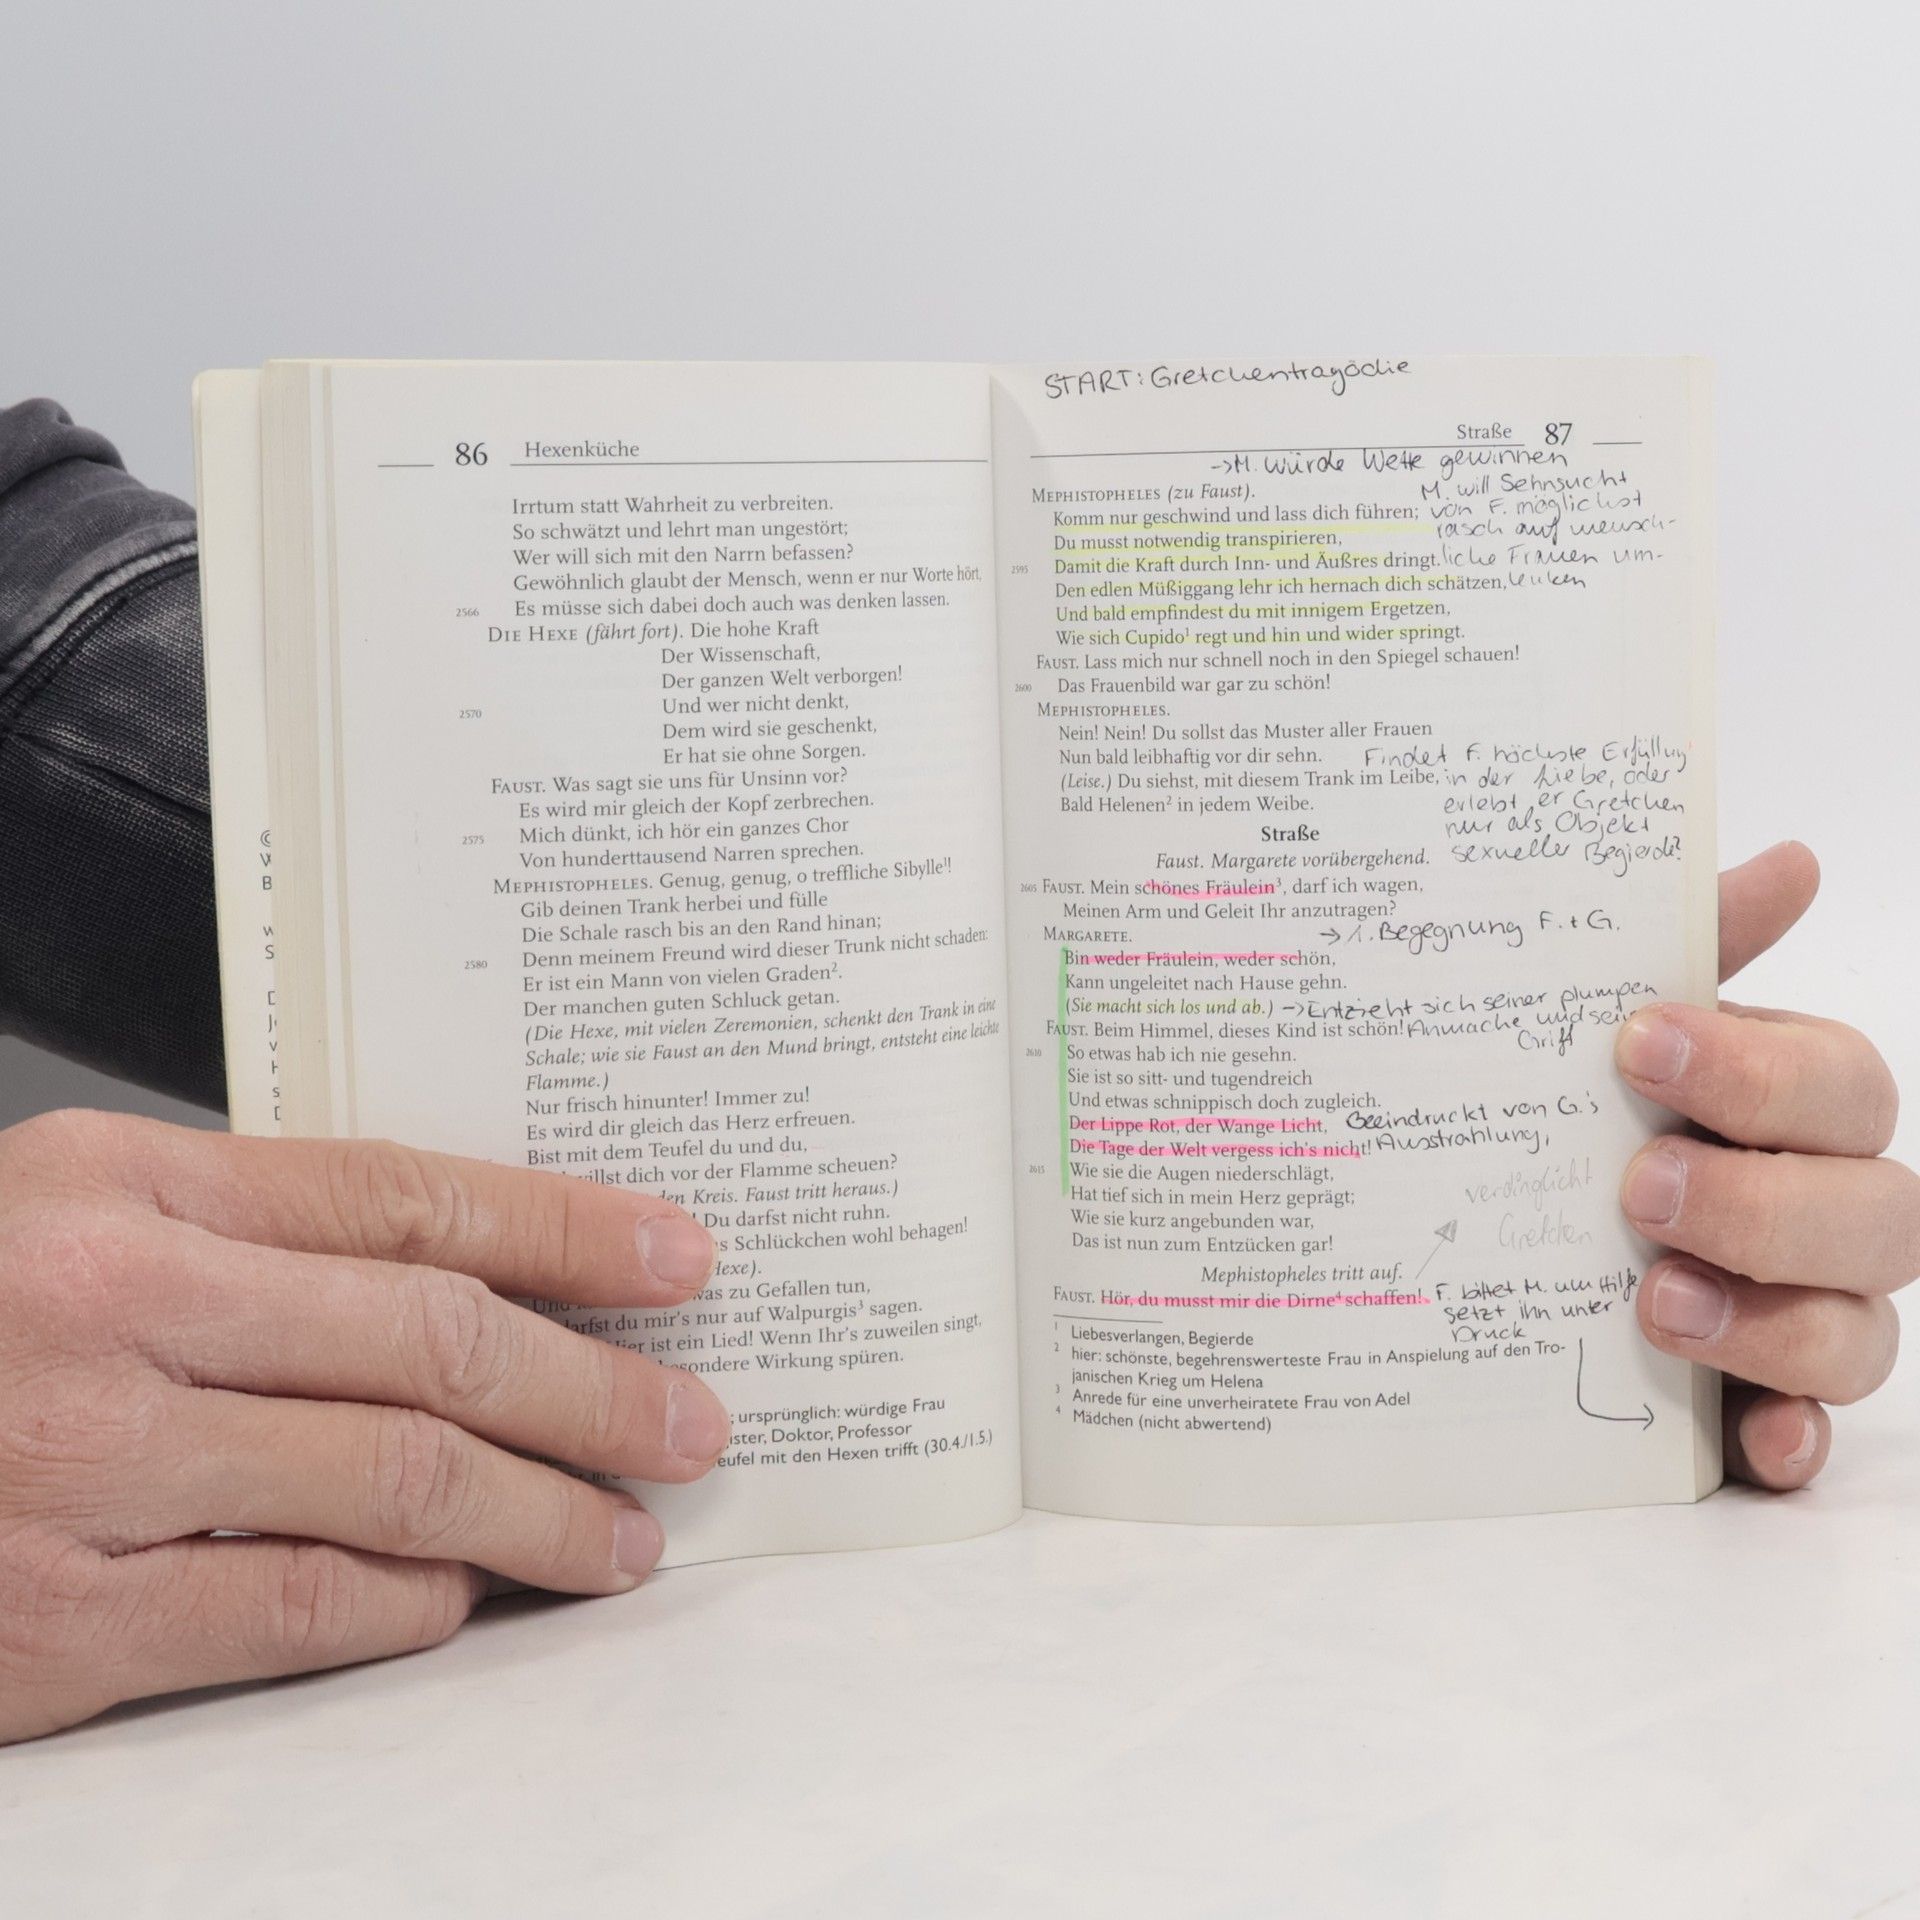 86 Hexenküche
Irrtum statt Wahrheit zu verbreiten.
So schwätzt und lehrt man ungestört;
Wer will sich mit den Narrn befassen?
Gewöhnlich glaubt der Mensch, wenn er nur Worte hört,
2566 Es müsse sich dabei doch auch was denken lassen.
DIE HEXE (fährt fort). Die hohe Kraft
Der Wissenschaft,
Der ganzen Welt verborgen!
2570 Und wer nicht denkt,
Dem wird sie geschenkt,
Er hat sie ohne Sorgen.
FAUST. Was sagt sie uns für Unsinn vor?
Es wird mir gleich der Kopf zerbrechen.
2575 Mich dünkt, ich hör ein ganzes Chor
Von hunderttausend Narren sprechen.
MEPHISTOPHELES. Genug, genug, o treffliche Sibylle¹!
Gib deinen Trank herbei und fülle
Die Schale rasch bis an den Rand hinan;
2580 Denn meinem Freund wird dieser Trunk nicht schaden:
Er ist ein Mann von vielen Graden².
Der manchen guten Schluck getan.
(Die Hexe, mit vielen Zeremonien, schenkt den Trank in eine
Schale; wie sie Faust an den Mund bringt, entsteht eine leichte
Flamme.)
Nur frisch hinunter! Immer zu!
Es wird dir gleich das Herz erfreuen.
Bist mit dem Teufel du und du,
willst dich vor der Flamme scheuen?
den Kreis. Faust tritt heraus.)
! Du darfst nicht ruhn.
Schlückchen wohl behagen!
Hexe).
was zu Gefallen tun,
darfst du mir's nur auf Walpurgis³ sagen.
Hier ist ein Lied! Wenn Ihr's zuweilen singt,
besondere Wirkung spüren.
; ursprünglich: würdige Frau
Doktor, Professor
mit den Hexen trifft (30.4./1.5.)
START: Gretchentragödie
Straße 87
->M. würde Wette gewinnen
MEPHISTOPHELES (zu Faust). M. will Sehnsucht
Komm nur geschwind und lass dich führen; von F. möglichst
Du musst notwendig transpirieren, rasch auf mensch-
2595 Damit die Kraft durch Inn- und Äußres dringt. liche Frauen um-
Den edlen Müßiggang lehr ich hernach dich schätzen, lenken
Und bald empfindest du mit innigem Ergetzen,
Wie sich Cupido¹ regt und hin und wider springt.
FAUST. Lass mich nur schnell noch in den Spiegel schauen!
2600 Das Frauenbild war gar zu schön!
MEPHISTOPHELES.
Nein! Nein! Du sollst das Muster aller Frauen
Nun bald leibhaftig vor dir sehn. Findet F. höchste Erfüllung
(Leise.) Du siehst, mit diesem Trank im Leibe, in der Liebe, oder
Bald Helenen² in jedem Weibe. erlebt er Gretchen
Straße nur als Objekt
Faust. Margarete vorübergehend. sexueller Begierde?
2605 FAUST. Mein schönes Fräulein³, darf ich wagen,
Meinen Arm und Geleit Ihr anzutragen?
MARGARETE. -> 1. Begegnung F. + G.
Bin weder Fräulein, weder schön,
Kann ungeleitet nach Hause gehn.
(Sie macht sich los und ab.) -> Entzieht sich seiner plumpen
FAUST. Beim Himmel, dieses Kind ist schön! Anmache und sein
2610 So etwas hab ich nie gesehn. Griff
Sie ist so sitt- und tugendreich
Und etwas schnippisch doch zugleich.
Der Lippe Rot, der Wange Licht, Beeindruckt von G.'s
Die Tage der Welt vergess ich's nicht! Ausstrahlung,
2615 Wie sie die Augen niederschlägt,
Hat tief sich in mein Herz geprägt; verdinglicht
Wie sie kurz angebunden war, Gretchen
Das ist nun zum Entzücken gar!
Mephistopheles tritt auf.
FAUST. Hör, du musst mir die Dirne⁴ schaffen! F. bittet M. um Hilfe
setzt ihn unter
Druck
¹ Liebesverlangen, Begierde
² hier: schönste, begehrenswerteste Frau in Anspielung auf den Tro-
janischen Krieg um Helena
³ Anrede für eine unverheiratete Frau von Adel
⁴ Mädchen (nicht abwertend)